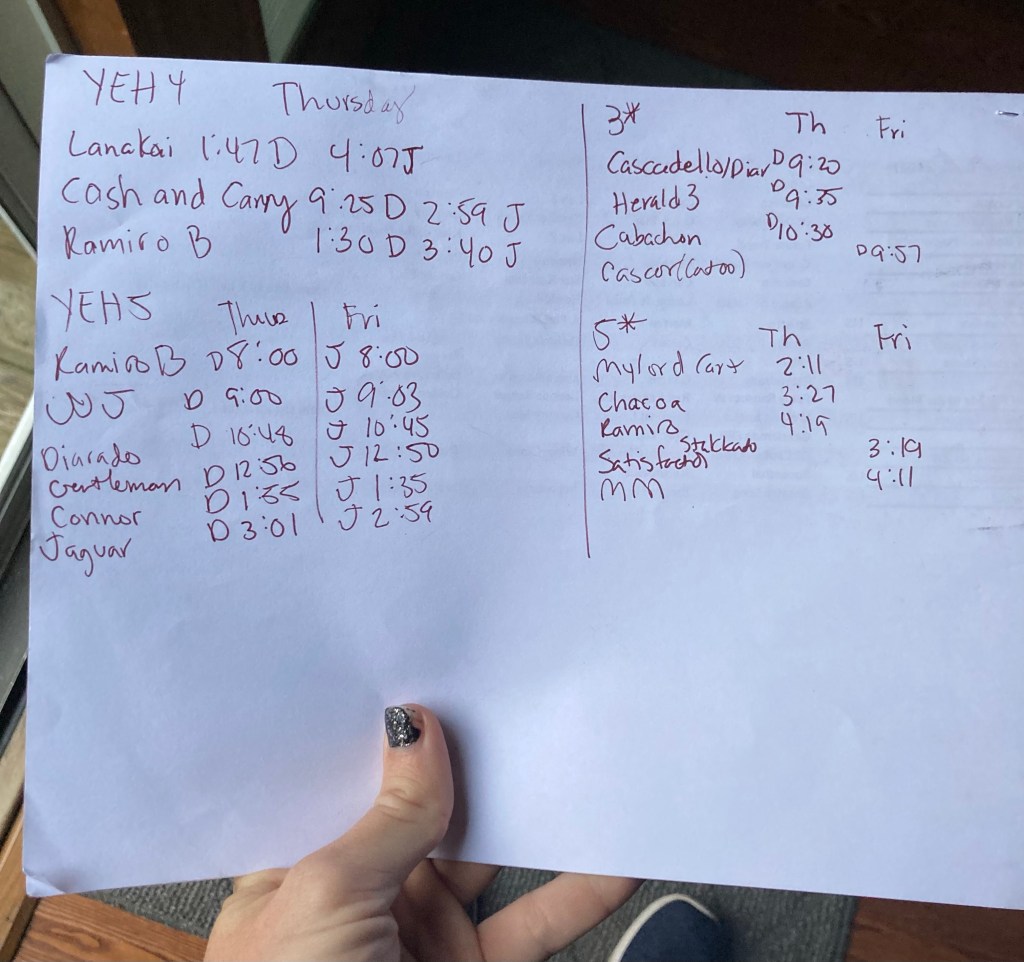 YEH4 Thursday
Lanakai 1:47 D 4:07 J
Cash and Carry 9:25 D 2:59 J
Ramiro B 1:30 D 3:40 J
YEH5 Thurs Fri
Ramiro B D 8:00 J 8:00
JJ D 9:00 J 9:03
Diarado D 10:48 J 10:45
Gentleman D 12:56 J 12:50
Connor D 1:55 J 1:35
Jaguar D 3:01 J 2:59
3* Th Fri
Cascadello/Diar D 9:20
Herald 3 D 9:35
Cabachon D 10:30
Cascor(Catoo) D 9:57
5* Th Fri
Mylord Cart 2:11
Chacoa 3:27
Ramiro 4:19
Satisfaction Stakkado 3:19
MM 4:11